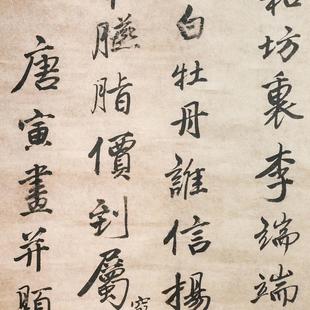 和坊裏李端端
白牡丹誰信揚
臙脂價到屬
唐寅畫并題